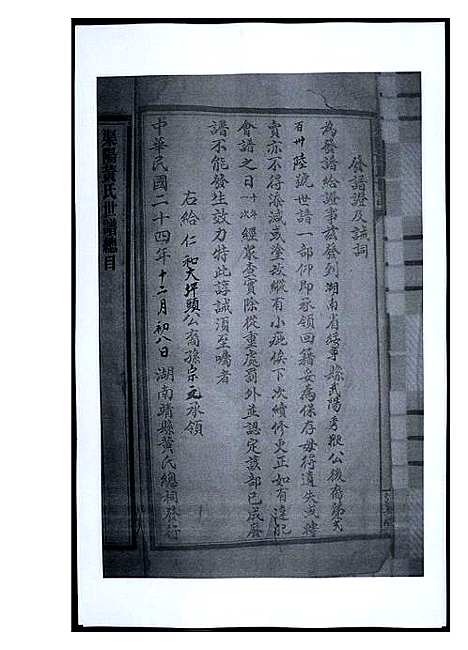 發譜證及誡詞
為發譜給證事茲發到湖南省綏寧縣武陽秀㮣公後裔第弍
百卅陸號世譜一部仰即承領回籍妥為保存毋得遺失或轉
賣亦不得添減或塗改縱有小疵俟下次續修更正如有違犯
會譜之日十年一次經衆查實除從重處罰外並認定該部已成廢
譜不能發生效力特此諄誡須至囑者
右給仁和大坪頭公裔孫宗元承領
中華民國二十四年十二月初八日湖南靖縣黃氏總祠發行
渠陽黃氏世譜總目